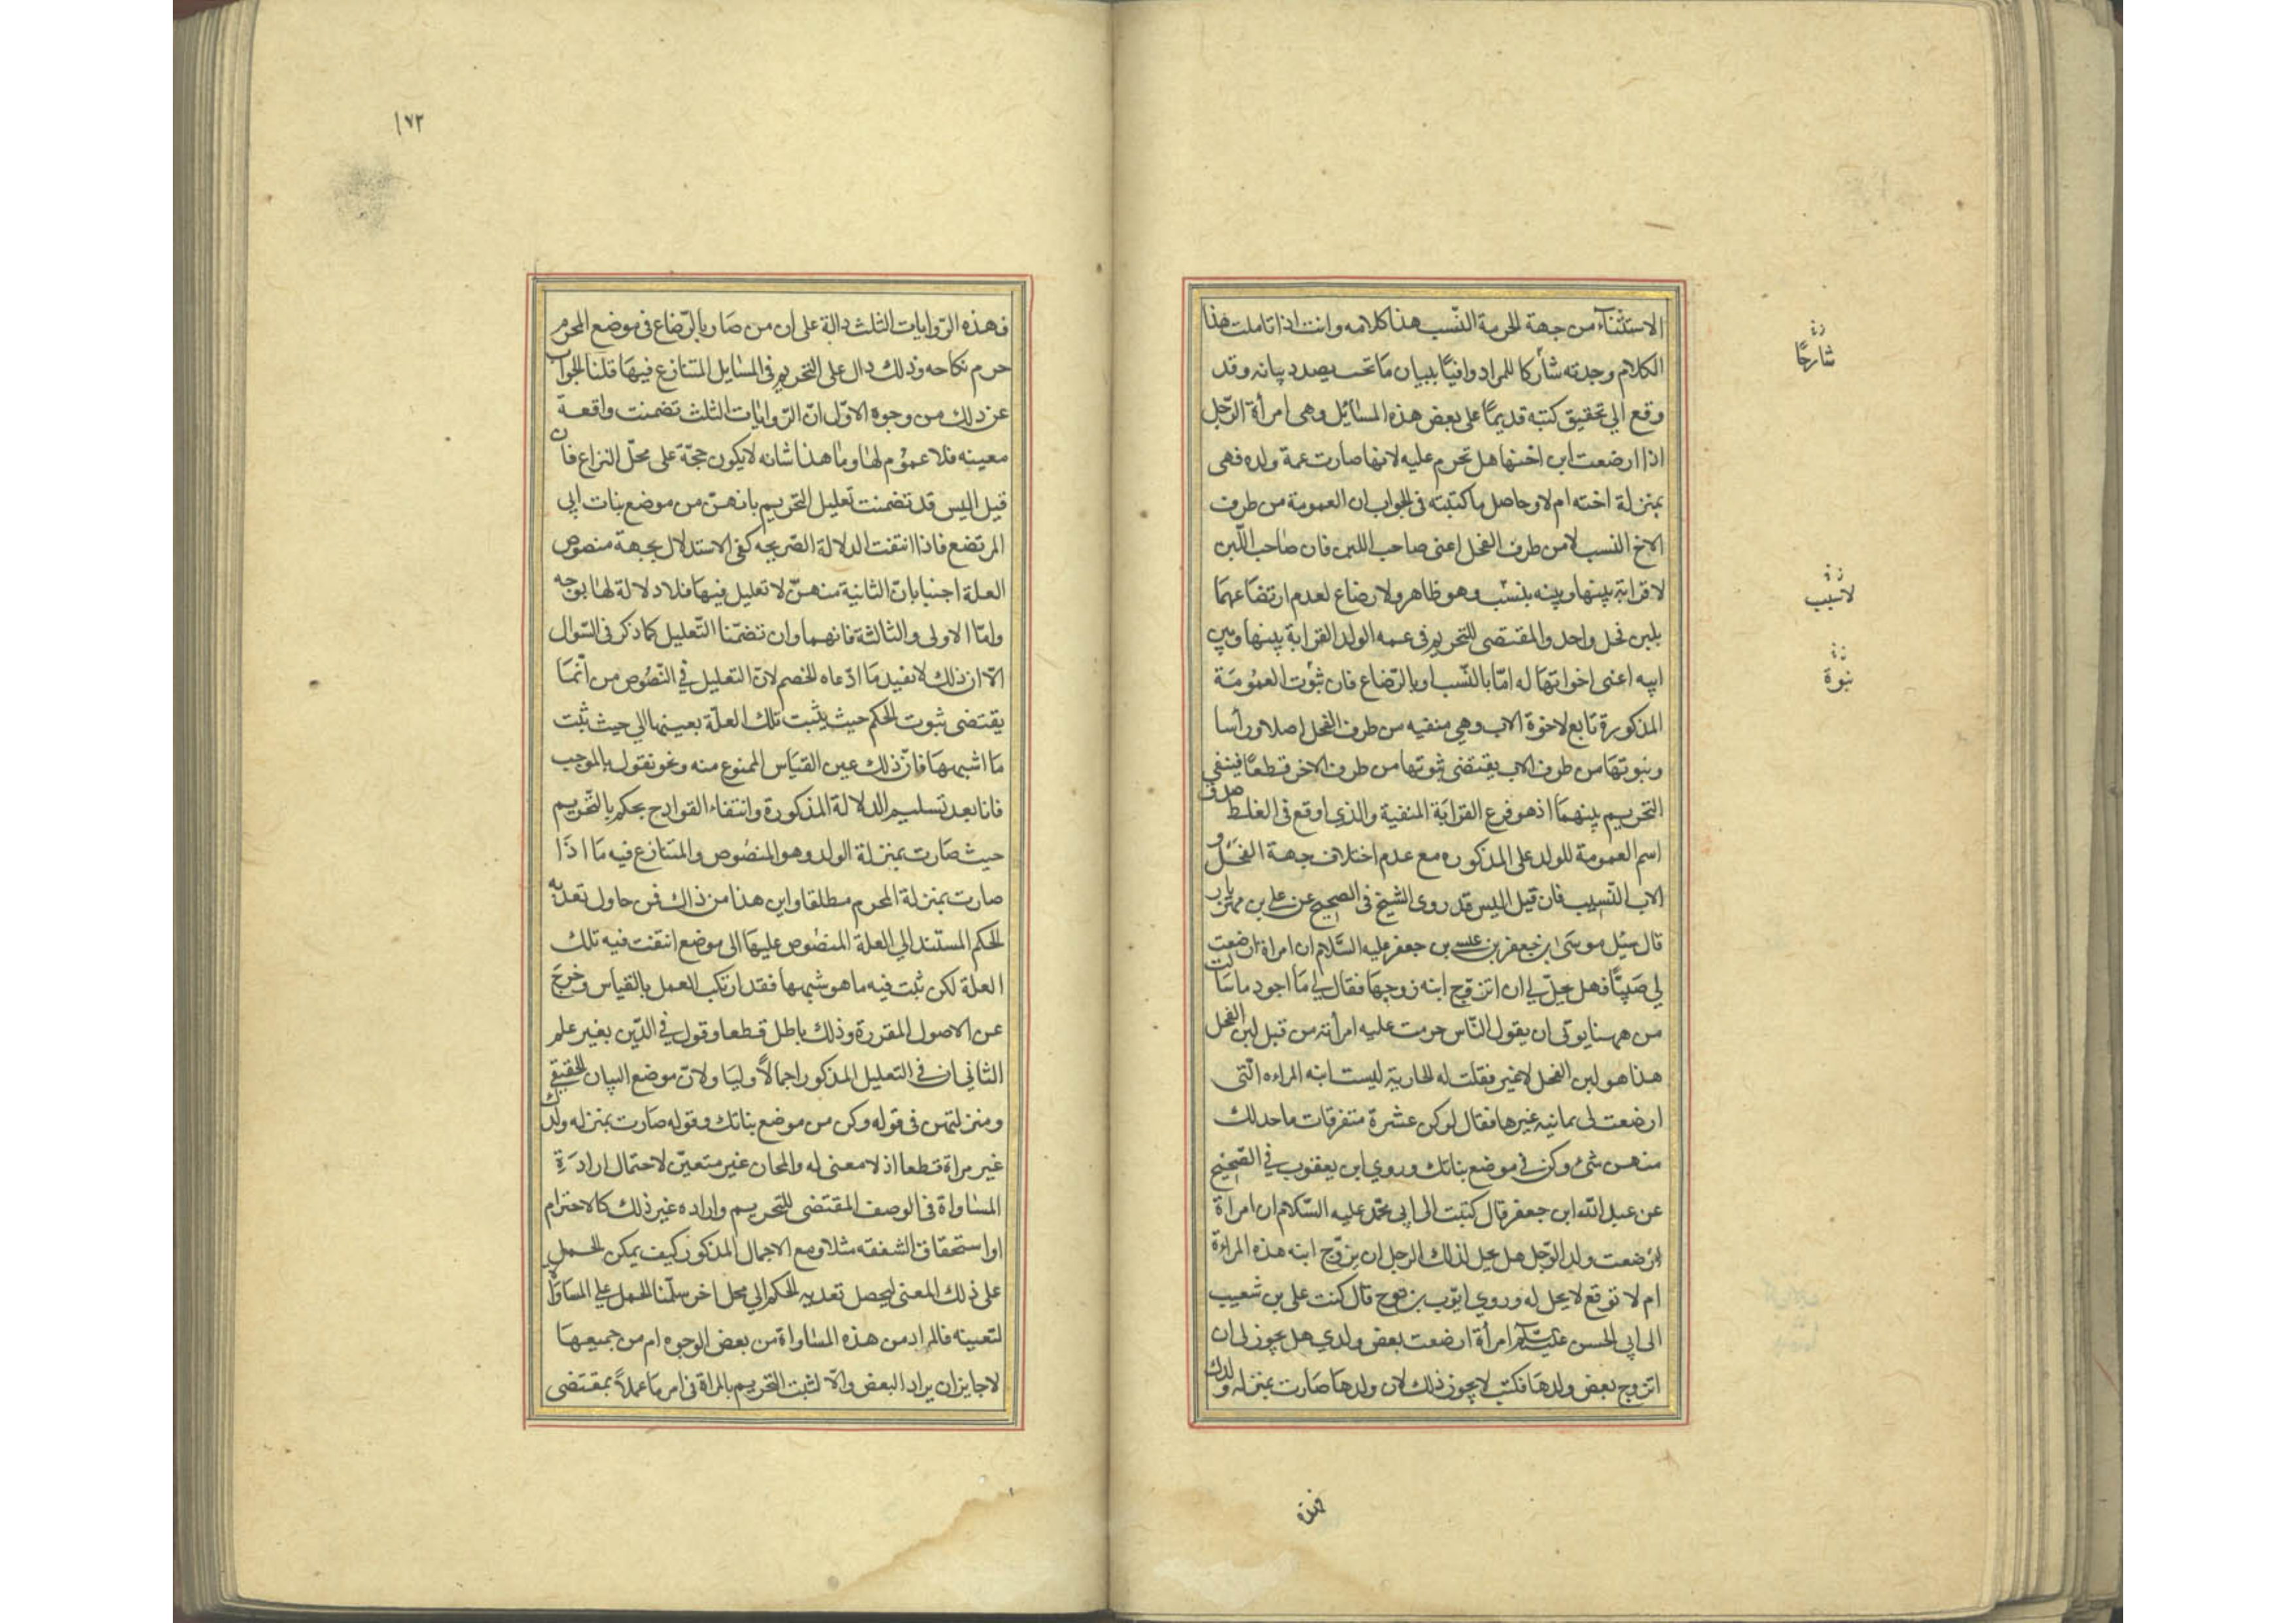 الاستثناء من جهة الحرمة النسب هذا كلامه وانت اذا تاملت هذا
الكلام وجدته شاركا للمراد وافيًا ببيان ما نحن بصدد بيانه وقد
وقع لي تحقيق كتبه قديمًا على بعض هذه المسائل وهي امرأة الرّجل
اذا ارضعت ابن اختها هل تحرم عليه لانها صارت عمة ولده فهى
بمنزلة اخته ام لا وحاصل ما كتبته فى الجواب ان العمومة من طرف
الاخ النسب لا من طرف الفحل اعنى صاحب اللبن فان صاحب اللّبن
لا قرابة بينها وبينه بنسب وهو ظاهر ولا رضاع لعدم ارتضاعهما
بلبن فحل واحد والمقتضى للتحريم فى عمه الولد القرابة بينها وبين
ابيه اعنى اخواتها له امّا بالنّسب او بالرّضاع فان ثبوت العمومة
المذكورة تابع لاخوة الاب وهي منفيه من طرف الفحل اصلا ورأسا
وبنوتها من طرف الاب يقتضى ثبوتها من طرف الاخر قطعا فينفي
التحريم بينهما اذ هو فرع القرابة المنفية والذى اوقع فى الغلط صدق
اسم العمومة للولد على المذكوره مع عدم اختلاف جهة الفحل و
الاب النّسيب فان قيل اليس قد روى الشيخ فى الصحيح عن على بن مهزيار
قال سئل موسى ابن جعفر بن عيسى بن جعفر عليه السّلام ان امراة ارضعت
لي صبيّا فهل يحلّ لي ان اتزوّج ابنه زوجها فقال لي ما اجود ما سألت
من ههنا يوتى ان يقول النّاس حرمت عليه امرأته من قبل لبن الفحل
هذا هو لبن الفحل لا غير فقلت له الجارية ليست ابنه المراءه الّتى
ارضعت لى هى ابنة غيرها فقال لو كن عشرة متفرقات ما حل لك
منهن شئ وكن فى موضع بناتك وروي ابن يعقوب فى الصّحيح
عن عبد اللّه ابن جعفر قال كتبت الى ابى محمّد عليه السّلام ان امراة
ارضعت ولد الرّجل هل يحل لذلك الرجل ان يزوّج ابنه هذه المراءة
ام لا توقع لا يحل له وروي ايّوب بن نوح قال كتب على بن شعيب
الى ابى الحسن عليه السّلام امرأة ارضعت بعض ولدي هل يجوز لى ان
اتزوج بعض ولدها فكتب لا يجوز ذلك لان ولدها صارت بمنزله ولدك
شارحًا
لا نسب
بنوة
فهذه
١٧٢
فهذه الرّوايات الثلث دالة على ان من صار بالرّضاع فى موضع المحرم
حرم نكاحه وذلك دال على التحريم فى المسايل المتنازع فيها قلنا الجواب
عن ذلك من وجوه الاوّل انّ الرّوايات الثلث تضمنت واقعة
معينه فلا عموم لها وما هذا شانه لا يكون حجّة على محلّ النزاع فان
قيل اليس قد تضمنت تعليل التحريم بانهنّ من موضع بنات ابى
المرتضع فاذا انتفت الدلالة الصّريحه كفى الاستدلال بجهة منصوص
العلة اجبنا بانّ الثانية منهنّ لا تعليل فيها فلا دلالة لها بوجه
وامّا الاولى والثالثة فانهما وان تضمّنا التّعليل كما ذكر فى السّوال
الّا ان ذلك لا يفيد ما ادّعاه الخصم لانّ التعليل في النّصوص من انّما
يقتضى ثبوت الحكم حيث يثبت تلك العلّة بعينها الي حيث ثبت
ما اشبهها فانّ ذلك عين القياس الممنوع منه ونحو نقول بالموجب
فانا بعد تسليم الدلالة المذكورة وانتفاء القوادح بحكم بالتّحريم
حيث صارت بمنزلة الولد وهو المنصوص والمتنازع فيه ما اذا
صارت بمنزلة المحرم مطلقا واين هذا من ذاك فمن حاول تعديه
الحكم المستند الي العلة المنصوص عليها الى موضع انتفت فيه تلك
العلة لكن ثبت فيه ما هو شبهها فقد ارتكب العمل بالقياس وخرج
عن الاصول المقررة وذلك باطل قطعا وقول في الدّين بغير علم
الثاني ان فى التعليل المذكور اجمالًا وليا ولانّ موضع البيان الحقيقي
ومنزلتهن فى قوله وكن من موضع بناتك وقوله صارت بمنزله ولدك
غير مراة قطعا اذ لا معنى له والمجان غير متعيّن لاحتمال ارادة
المساواة فى الوصف المقتضى للتحريم واراده غير ذلك كالاحترام
او استحقاق الشفقه مثلا ومع الاجمال المذكور كيف يمكن الحمل
على ذلك المعنى ليحصل تعديه الحكم الي محل اخر سلّمنا الحمل على المساواة
لتعينه فالمراد من هذه المساواة من بعض الوجوه ام من جميعها
لا جايز ان يراد البعض والّا لثبت التحريم بالمراة فى امر ما عملاً بمقتضى